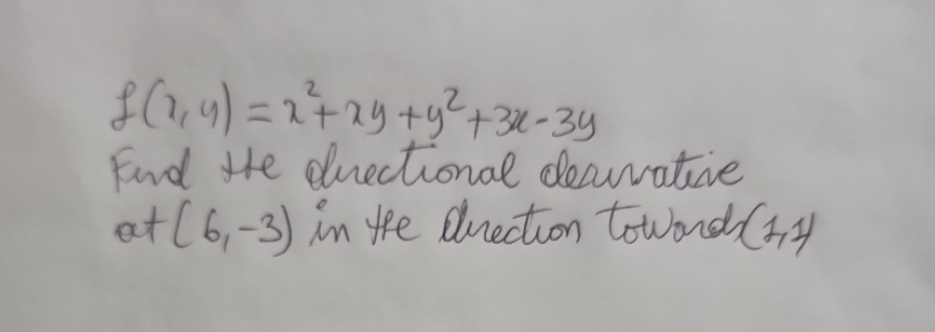 f(x,y) = x²+xy+y²+3x-3y
Find the directional derivative
at (6,-3) in the direction towards (1,1)